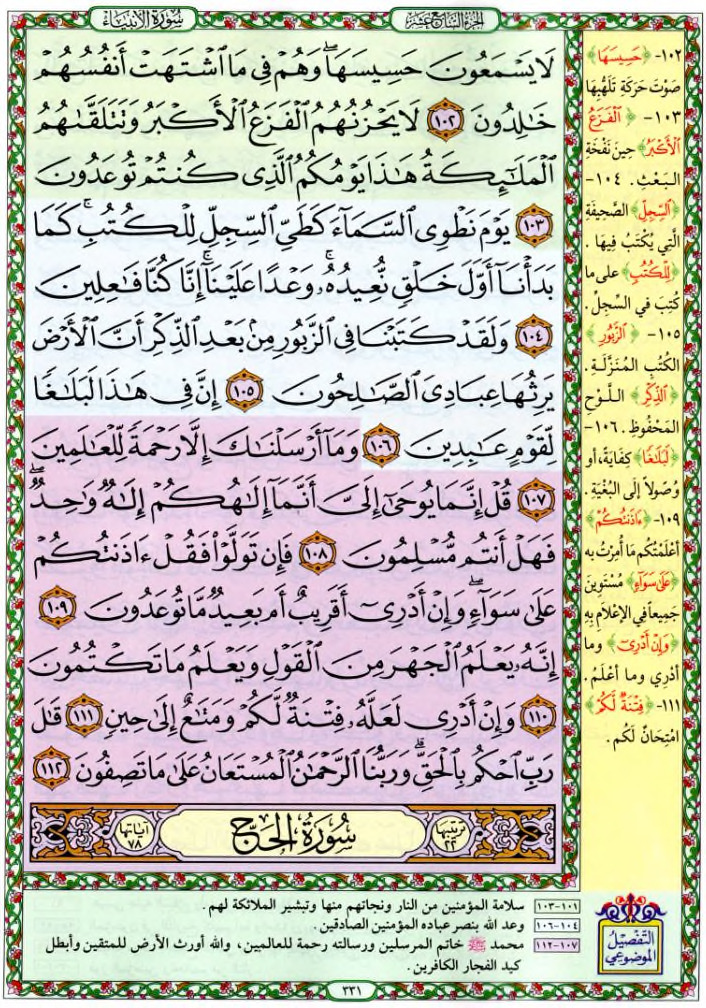 سُورَةُ الأَنبِيَاءِ
الجُزْءُ السَّابِعَ عَشَرَ
لَا يَسْمَعُونَ حَسِيسَهَا ۖ وَهُمْ فِي مَا ٱشْتَهَتْ أَنفُسُهُمْ
خَٰلِدُونَ ١٠٢ لَا يَحْزُنُهُمُ ٱلْفَزَعُ ٱلْأَكْبَرُ وَتَتَلَقَّىٰهُمُ
ٱلْمَلَٰٓئِكَةُ هَٰذَا يَوْمُكُمُ ٱلَّذِي كُنتُمْ تُوعَدُونَ
١٠٣ يَوْمَ نَطْوِي ٱلسَّمَآءَ كَطَيِّ ٱلسِّجِلِّ لِلْكُتُبِ ۚ كَمَا
بَدَأْنَآ أَوَّلَ خَلْقٍ نُّعِيدُهُۥ ۚ وَعْدًا عَلَيْنَآ ۚ إِنَّا كُنَّا فَٰعِلِينَ
١٠٤ وَلَقَدْ كَتَبْنَا فِي ٱلزَّبُورِ مِنۢ بَعْدِ ٱلذِّكْرِ أَنَّ ٱلْأَرْضَ
يَرِثُهَا عِبَادِيَ ٱلصَّٰلِحُونَ ١٠٥ إِنَّ فِي هَٰذَا لَبَلَٰغًا
لِّقَوْمٍ عَٰبِدِينَ ١٠٦ وَمَآ أَرْسَلْنَٰكَ إِلَّا رَحْمَةً لِّلْعَٰلَمِينَ
١٠٧ قُلْ إِنَّمَا يُوحَىٰٓ إِلَيَّ أَنَّمَآ إِلَٰهُكُمْ إِلَٰهٌ وَٰحِدٌ ۖ
فَهَلْ أَنتُم مُّسْلِمُونَ ١٠٨ فَإِن تَوَلَّوْا۟ فَقُلْ ءَاذَنتُكُمْ
عَلَىٰ سَوَآءٍ ۖ وَإِنْ أَدْرِيٓ أَقَرِيبٌ أَم بَعِيدٌ مَّا تُوعَدُونَ ١٠٩
إِنَّهُۥ يَعْلَمُ ٱلْجَهْرَ مِنَ ٱلْقَوْلِ وَيَعْلَمُ مَا تَكْتُمُونَ
١١٠ وَإِنْ أَدْرِي لَعَلَّهُۥ فِتْنَةٌ لَّكُمْ وَمَتَٰعٌ إِلَىٰ حِينٍ ١١١ قَٰلَ
رَبِّ ٱحْكُم بِٱلْحَقِّ ۗ وَرَبُّنَا ٱلرَّحْمَٰنُ ٱلْمُسْتَعَانُ عَلَىٰ مَا تَصِفُونَ ١١٢
ترتيبها ٢٢
سُورَةُ الحَجِّ
آياتها ٧٨
١٠٢- ﴿حَسِيسَهَا﴾
صَوْتَ حَرَكَةِ تَلَهُّبِهَا
١٠٣- ﴿ٱلْفَزَعُ
ٱلْأَكْبَرُ﴾ حِينَ نَفْخَةِ
البَعْثِ. ١٠٤-
﴿ٱلسِّجِلِّ﴾ الصَّحِيفَةِ
الَّتِي يُكْتَبُ فِيهَا.
﴿لِلْكُتُبِ﴾ على ما
كُتِبَ في السِّجِلِّ.
١٠٥- ﴿ٱلزَّبُورِ﴾
الكُتُبِ المُنَزَّلَةِ.
﴿ٱلذِّكْرِ﴾ اللَّوْحِ
المَحْفُوظِ. ١٠٦-
﴿لَبَلَٰغًا﴾ كِفَايَةً، أو
وُصُولاً إلَى البُغْيَةِ.
١٠٩- ﴿ءَاذَنتُكُمْ﴾
أَعْلَمْتُكُم مَا أُمِرْتُ به
﴿عَلَىٰ سَوَآءٍ﴾ مُسْتَوِينَ
جَمِيعاً فِي الإِعْلَامِ بِهِ
﴿وَإِنْ أَدْرِيٓ﴾ وما
أَدْرِي وما أَعْلَمُ.
١١١- ﴿فِتْنَةٌ لَّكُمْ﴾
امْتِحَانٌ لَكُم.
التَّفْصِيلُ
المَوْضُوعِي
١٠١-١٠٣ سلامة المؤمنين من النار ونجاتهم منها وتبشير الملائكة لهم.
١٠٤-١٠٦ وعد الله بنصر عباده المؤمنين الصادقين.
١٠٧-١١٢ محمد ﷺ خاتم المرسلين ورسالته رحمة للعالمين، والله أورث الأرض للمتقين وأبطل
كيد الفجار الكافرين.
٣٣١